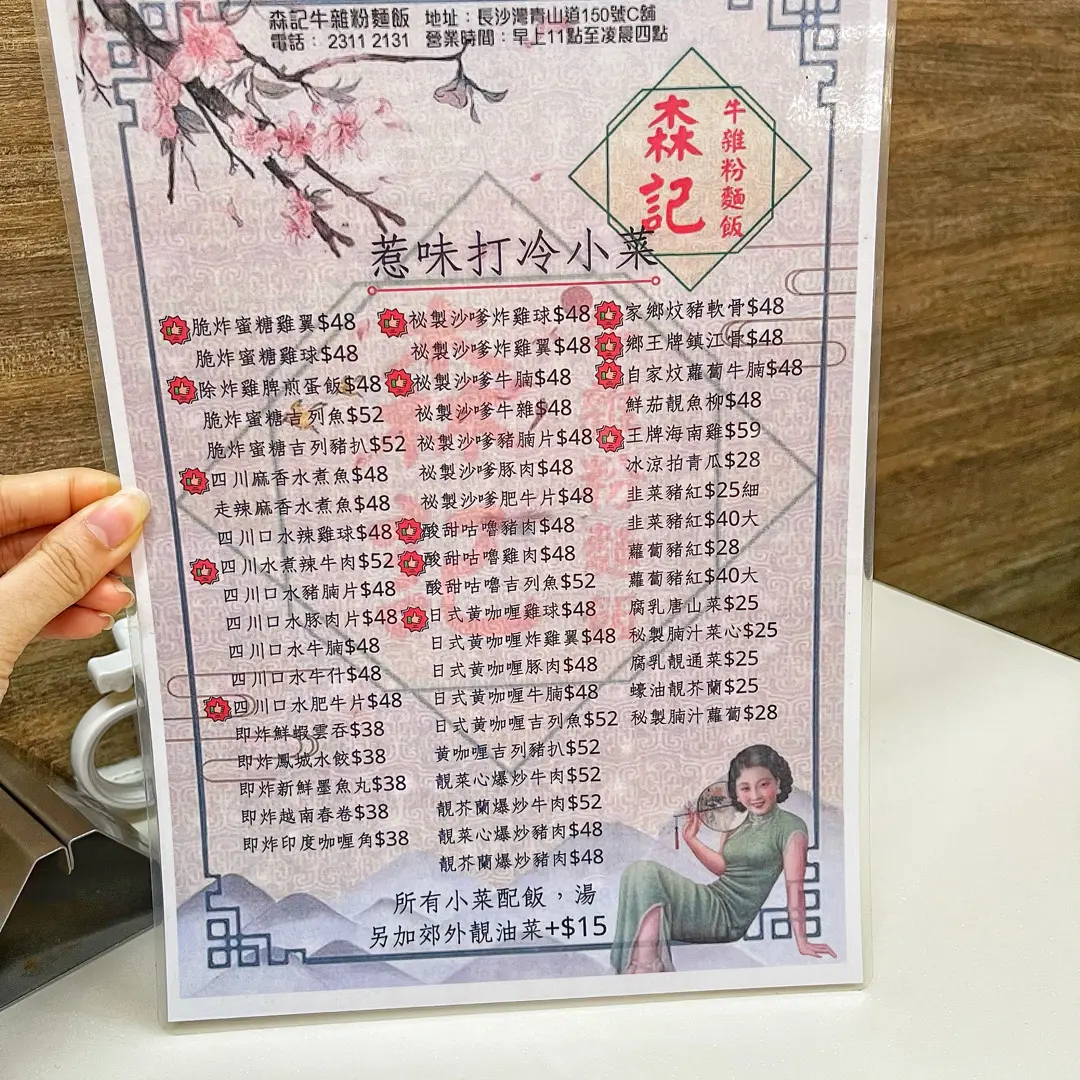 森記牛雜粉麵飯 地址:長沙灣青山道150號C舖
電話: 2311 2131 營業時間:早上11點至凌晨四點
森記
牛雜粉麵飯
惹味打冷小菜
脆炸蜜糖雞翼$48
脆炸蜜糖雞球$48
除炸雞脾煎蛋飯$48
脆炸蜜糖吉列魚$52
脆炸蜜糖吉列豬扒$52
四川麻香水煮魚$48
走辣麻香水煮魚$48
四川口水辣雞球$48
四川水煮辣牛肉$52
四川口水豬腩片$48
四川口水豚肉片$48
四川口水牛腩$48
四川口水牛什$48
四川口水肥牛片$48
即炸鮮蝦雲吞$38
即炸鳳城水餃$38
即炸新鮮墨魚丸$38
即炸越南春卷$38
即炸印度咖喱角$38
祕製沙嗲炸雞球$48
祕製沙嗲炸雞翼$48
祕製沙嗲牛腩$48
祕製沙嗲牛雜$48
祕製沙嗲豬腩片$48
祕製沙嗲豚肉$48
祕製沙嗲肥牛片$48
酸甜咕嚕豬肉$48
酸甜咕嚕雞肉$48
酸甜咕嚕吉列魚$52
日式黄咖喱雞球$48
日式黄咖喱炸雞翼$48
日式黄咖喱豚肉$48
日式黄咖喱牛腩$48
日式黄咖喱吉列魚$52
黄咖喱吉列豬扒$52
靚菜心爆炒牛肉$52
靚芥蘭爆炒牛肉$52
靚菜心爆炒豬肉$48
靚芥蘭爆炒豬肉$48
家鄉炆豬軟骨$48
鄉王牌鎮江骨$48
自家炆蘿蔔牛腩$48
鮮茄靚魚柳$48
王牌海南雞$59
冰涼拍青瓜$28
韭菜豬紅$25細
韭菜豬紅$40大
蘿蔔豬紅$28
蘿蔔豬紅$40大
腐乳唐山菜$25
秘製腩汁菜心$25
腐乳靚通菜$25
蠔油靚芥蘭$25
秘製腩汁蘿蔔$28
所有小菜配飯,湯
另加郊外靚油菜+$15